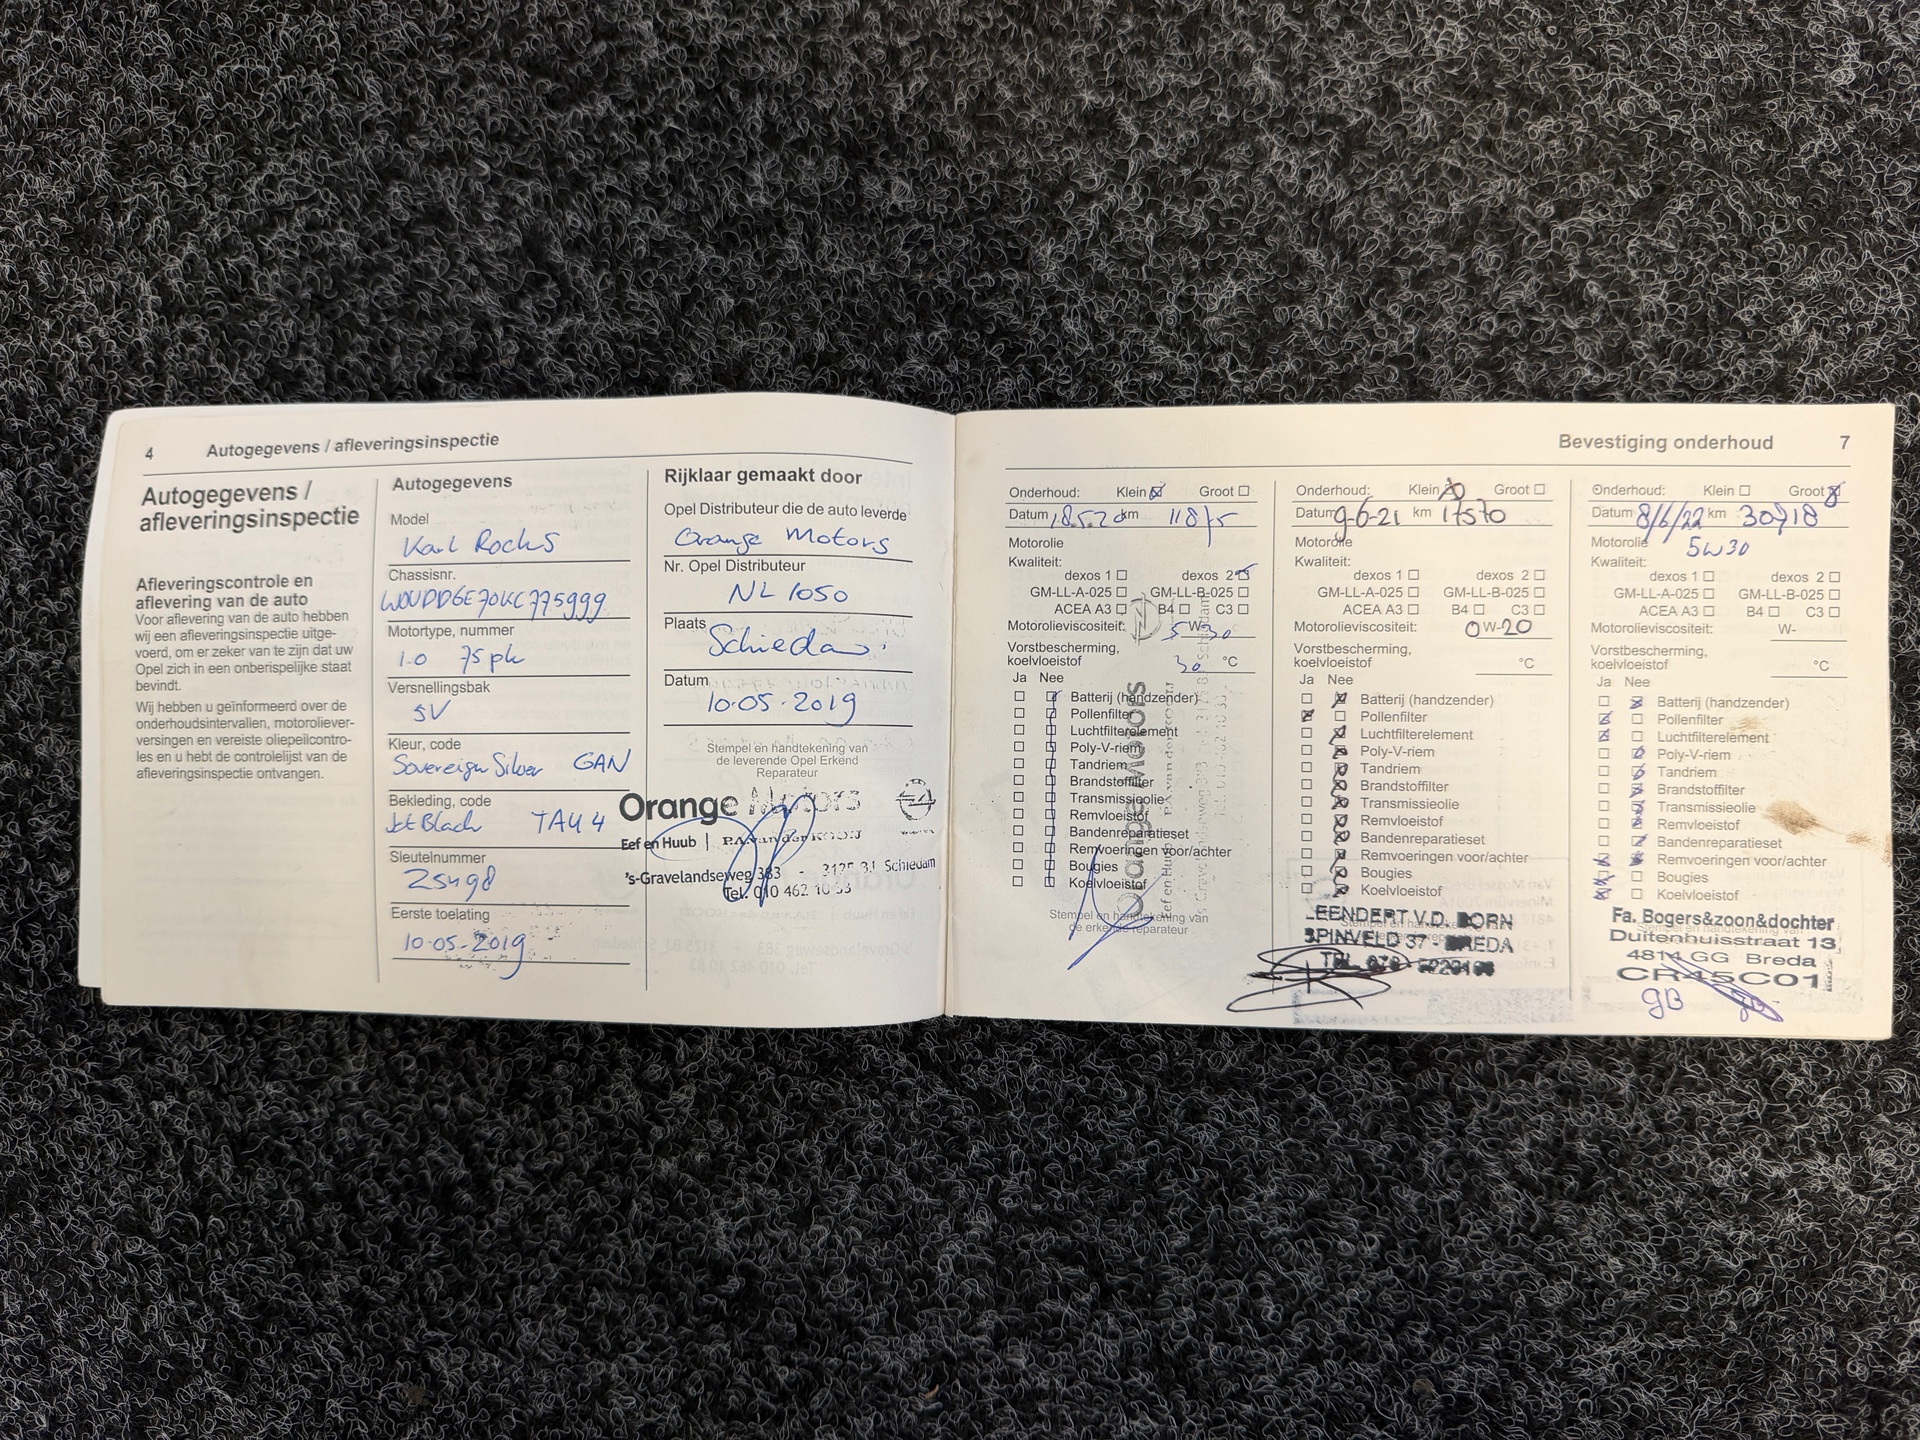 4 Autogegevens / afleveringsinspectie
Autogegevens /
afleveringsinspectie
Afleveringscontrole en
aflevering van de auto
Voor aflevering van de auto hebben
wij een afleveringsinspectie uitge-
voerd, om er zeker van te zijn dat uw
Opel zich in een onberispelijke staat
bevindt.
Wij hebben u geïnformeerd over de
onderhoudsintervallen, motoroliever-
versingen en vereiste oliepeilcontro-
les en u hebt de controlelijst van de
afleveringsinspectie ontvangen.
Autogegevens
Model
Karl Rocks
Chassisnr.
W0VDD6E70KC775999
Motortype, nummer
1.0 75pk
Versnellingsbak
5V
Kleur, code
Sovereign Silver GAN
Bekleding, code
Jet Black TAU4
Sleutelnummer
Eerste toelating
10-05-2019
Rijklaar gemaakt door
Opel Distributeur die de auto leverde
Orange Motors
Nr. Opel Distributeur
NL 1050
Plaats
Schiedam
Datum
10-05-2019
Stempel en handtekening van
de leverende Opel Erkend
Reparateur
Orange Motors
Eef en Huub | P.A. van der KOOIJ
's-Gravelandseweg 383 - 3125 BJ Schiedam
Tel. 010 462 10 83
Bevestiging onderhoud 7
Onderhoud: Klein Groot
Datum 18.5.20 km
Motorolie
Kwaliteit:
dexos 1 dexos 2
GM-LL-A-025 GM-LL-B-025
ACEA A3 B4 C3
Motorolieviscositeit: 5 W- 30
Vorstbescherming,
koelvloeistof 30 °C
Ja Nee
Batterij (handzender)
Pollenfilter
Luchtfilterelement
Poly-V-riem
Tandriem
Brandstoffilter
Transmissieolie
Remvloeistof
Bandenreparatieset
Remvoeringen voor/achter
Bougies
Koelvloeistof
Stempel en handtekening van
de erkende reparateur
Orange Motors
Eef en Huub
Onderhoud: Klein Groot
Datum 9-6-21 km 17570
Motorolie
Kwaliteit:
dexos 1 dexos 2
GM-LL-A-025 GM-LL-B-025
ACEA A3 B4 C3
Motorolieviscositeit: 0W-20
Vorstbescherming,
koelvloeistof °C
Ja Nee
Batterij (handzender)
Pollenfilter
Luchtfilterelement
Poly-V-riem
Tandriem
Brandstoffilter
Transmissieolie
Remvloeistof
Bandenreparatieset
Remvoeringen voor/achter
Bougies
Koelvloeistof
LEENDERT V.D. BORN
SPINVELD 37 - BREDA
Onderhoud: Klein Groot
Datum 8/6/22 km 30918
Motorolie 5W30
Kwaliteit:
dexos 1 dexos 2
GM-LL-A-025 GM-LL-B-025
ACEA A3 B4 C3
Motorolieviscositeit: W-
Vorstbescherming,
koelvloeistof °C
Ja Nee
Batterij (handzender)
Pollenfilter
Luchtfilterelement
Poly-V-riem
Tandriem
Brandstoffilter
Transmissieolie
Remvloeistof
Bandenreparatieset
Remvoeringen voor/achter
Bougies
Koelvloeistof
Fa. Bogers&zoon&dochter
Duitenhuisstraat 13
4814 GG Breda
CR45C01
GB